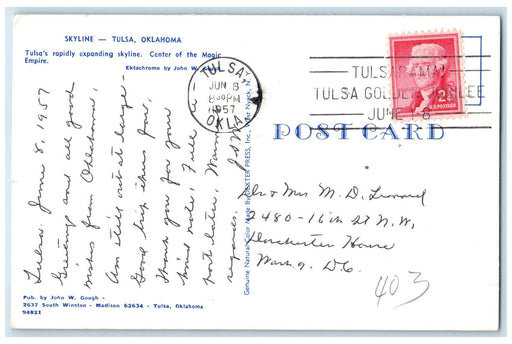 SKYLINE — TULSA, OKLAHOMA
Tulsa's rapidly expanding skyline. Center of the Magic
Empire.
Ektachrome by John W.
Tulsa. June 8, 1957
Greetings and all good
wishes from Oklahoma,
Am still out at large -
Good trip thus far,
Thank you for your
kind note; Full
post later, Warm
regards,
Pub. by John W. Gough -
2637 South Winston - Madison 62634 - Tulsa, Oklahoma
94821
Genuine Natural Color Made By DEXTER PRESS, Inc. West Nyack, N.Y.
TULSA
JUN 8
8:30 PM
1957
OKLA.
TULSARAMA!
TULSA GOLDEN JUBILEE
JUNE 1-8
2¢
U.S. POSTAGE
POST CARD
Dr & Mrs M. D. Leonard
2480-16th St N.W,
Dorchester House
Wash 9. DC
403